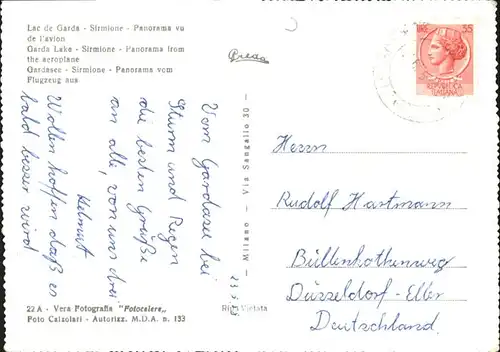 Lac de Garda - Sirmione - Panorama vu
de l'avion
Garda Lake - Sirmione - Panorama from
the aeroplane
Gardasee - Sirmione - Panorama vom
Flugzeug aus
Vom Gardasee bei
Sturm und Regen
die besten Grüße
an alle, von uns drei
Helmut
Wollen hoffen daß es
bald besser wird
22 A - Vera Fotografia "Fotocelere„
Foto Calzolari - Autorizz. M.D.A. n. 133
Rip. Vietata
— Milano - Via Sangallo 30 -
55
REPVBBLICA
ITALIANA
Herrn
Rudolf Hartmann
Büllenkothenweg
Düsseldorf-Eller
Deutschland